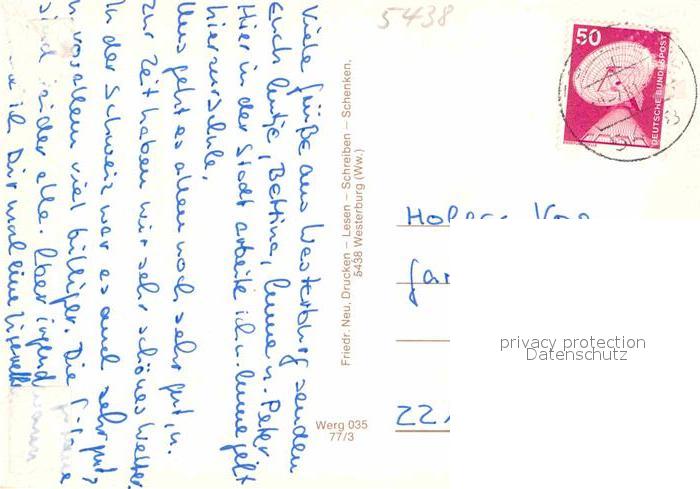 5438
50
DEUTSCHE BUNDESPOST
Viele Grüße aus Westerburg senden
Euch Antje, Bettina, Anne u. Peter
Hier in der Stadt arbeite ich u. Anne geht
hier zur Schule.
Uns geht es allen noch sehr gut u.
zur Zeit haben wir sehr schönes Wetter.
In der Schweiz war es auch sehr gut u
vor allem viel billiger. Die
sind leider alle. Aber irgendwann
ich Dir mal eine
Friedr. Neu, Drucken – Lesen – Schreiben – Schenken,
5438 Westerburg (Ww.)
Werg 035
77/3
22
privacy protection
Datenschutz